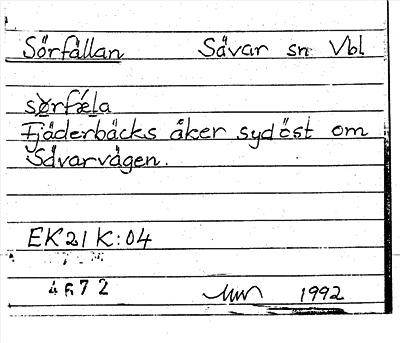 Sörfällan Sävar sn Vbl
sørfǽla
Fjäderbäcks åker sydöst om
Sävarvägen.
EK21K:04
4672 1992